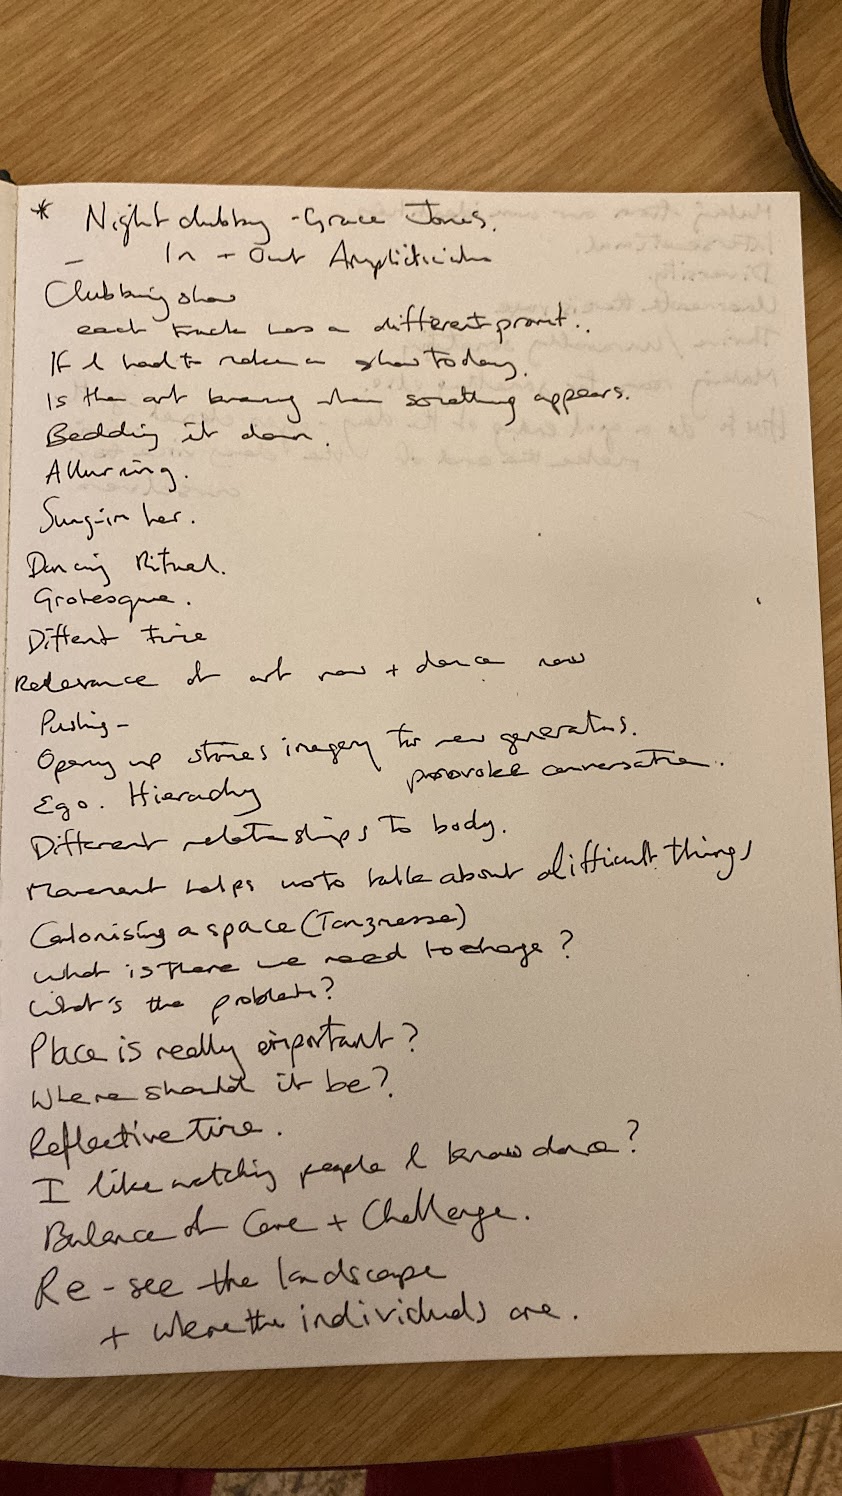 * Nightclubbing - Grace Jones.
- In + Out
Clubbing show
each track has a different promt..
If I had to make a show today.
Is the art knowing when something appears.
Bedding it down.
Allurring.
her.
Dancing Ritual.
Grotesque.
Diffent time
Relevance of art now + dance now
Pushing -
Opening up stories imagery for new generations.
provoke conversation.
Ego. Hierachy
Different relationships to body.
Movement helps us to talk about difficult things
Colonising a space (Tanzmesse)
What is there we need to change?
What's the problem?
Place is really important?
Where should it be?
Reflective time.
I like watching people I know dance?
Balance of Care + Challenge.
Re-see the landscape
+ where the individuals are.